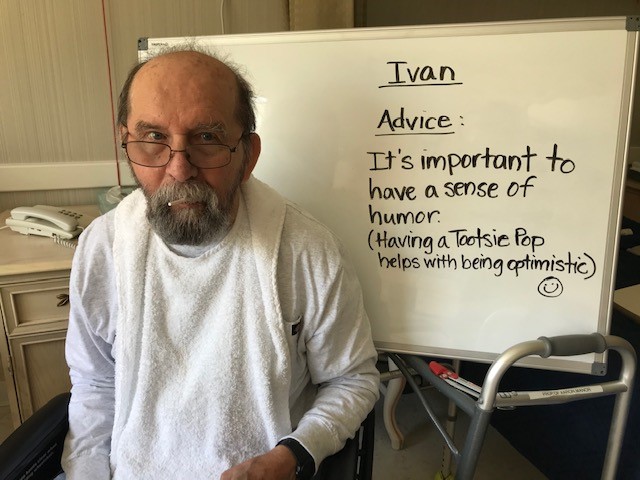 Ivan
Advice:
It's important to
have a sense of
humor.
(Having a Tootsie Pop
helps with being optimistic)